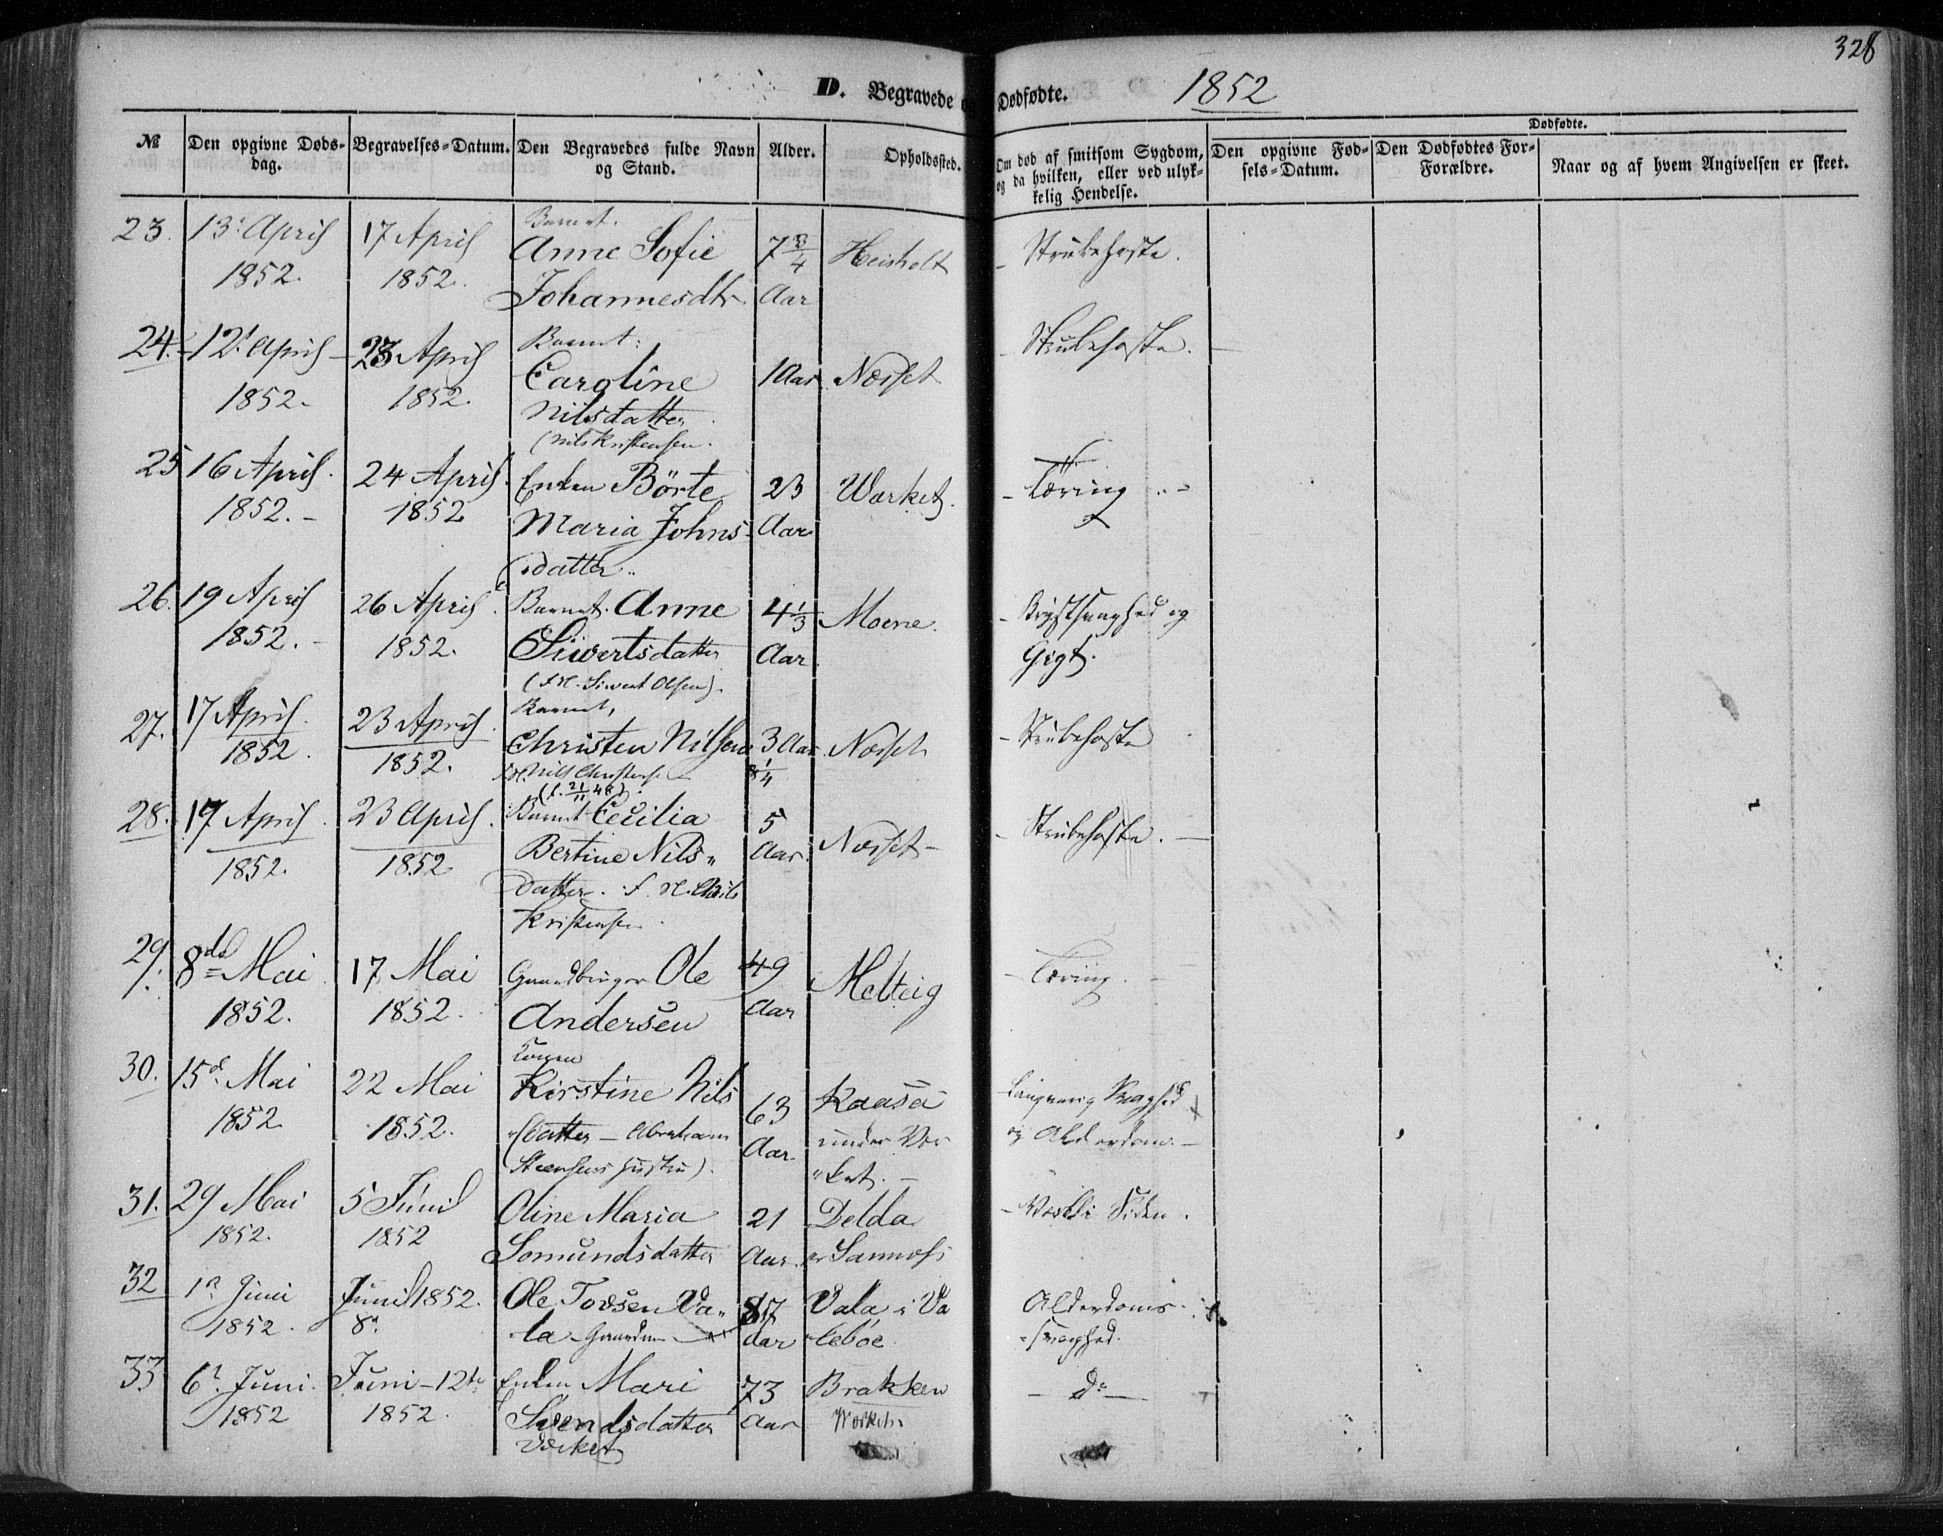 328
D. Begravede og Dødfødte. 1852
No
Den opgivne Døds-
dag.
Begravelses-Datum.
Den Begravedes fulde Navn
og Stand.
Alder.
Opholdssted.
Om død af smitsom Sygdom,
og da hvilken, eller ved ulyk-
kelig Hendelse.
Dødfødte.
Den opgivne Fød-
sels-Datum.
Den Dødfødtes For-
Forældre.
Naar og af hvem Angivelsen er skeet.
23. 13. April 17 April Barnet.
Anne Sofie 7 3/4 Heisholt Strubehoste.
1852. 1852. Johannesdtr. Aar
24. 12. April 23 April Barnet:
Caroline 1 Aar Næsset Strubehoste.
1852. 1852. Nilsdatter
(Nils Kristensen.
25 16 April. 24 April. Enken Börte 23 Værket. Tæring
1852. 1852 Maria Johns- Aar
datter
26. 19 April 26 April. Barnet. Anne 4 1/3 Moene. Brystsvaghed og
1852. 1852. Siwertsdatter Aar. Gigt.
(Siwert Olsen).
27. 17 April. 23 April. Barnet,
1852. 1852. Christen Nilsen 3 Aar Næsset Strubehoste
1/4
(f. 21/11 48).
28. 17 April. 23 April. Barnet Cecilia 5 Næsset Strubehoste.
1852. 1852 Bertine Nils- Aar.
datter. Nils
Kristensen
29. 8de Mai 17 Mai Gaardbruger Ole 49 Melteig Tæring.
1852. 1852. Andersen Aar
30. 15d. Mai 22 Mai Konen
Kirstine Nils 63 Kaasa Langvarig Svaghed
1852 1852. datter - Abraham Aar. under Vær og Alderdom
Steensens Hustru). ket.
31. 29 Mai 5 Juni Oline Maria 21 Delda Værk i Siden.
1852. 1852 Somundsdatter Aar.
32 1. Juni Juni 1852. Ole Tovsen Va- 87 Vala i Va Alderdoms-
1852. 8. la - Gaardm Aar leböe. svaghed.
33 6. Juni. Juni - 12te Enken Mari 73 Brakken do
1852 1852. Svendsdatter Aar Værket
Værket